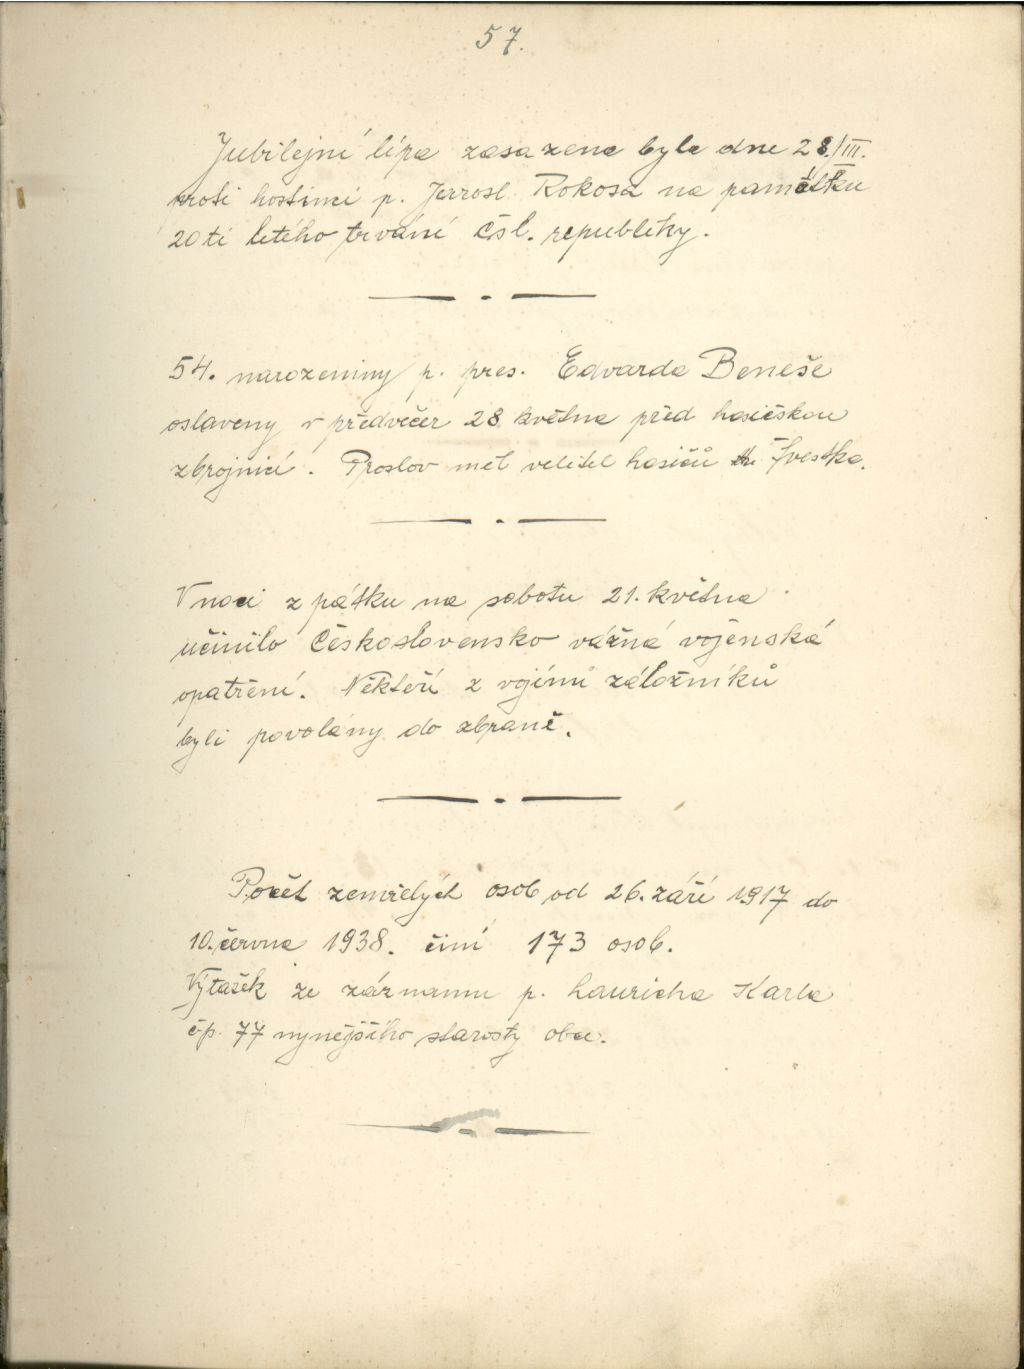 57.
Jubilejní lípa zasazena byla dne 28./III.
proti hostinci p. Jarosl. Rokosa na památku
20ti letého trvání čsl. republiky.
54. narozeniny p. pres. Edvarda Beneše
oslaveny v předvečer 28 května před hasičskou
zbrojnicí. Proslov měl velitel hasičů Švestka.
V noci z pátku na sobotu 21. května
učinilo Československo vážná vojenská
opatření. Někteří z vojínů záložníků
byli povolány do zbraně.
Počet zemřelých osob od 26. září 1917 do
10. června 1938. činí 173 osob.
Výtažek ze záznamu p. Lauricha Karla
čp. 77 nynějšího starosty obce.